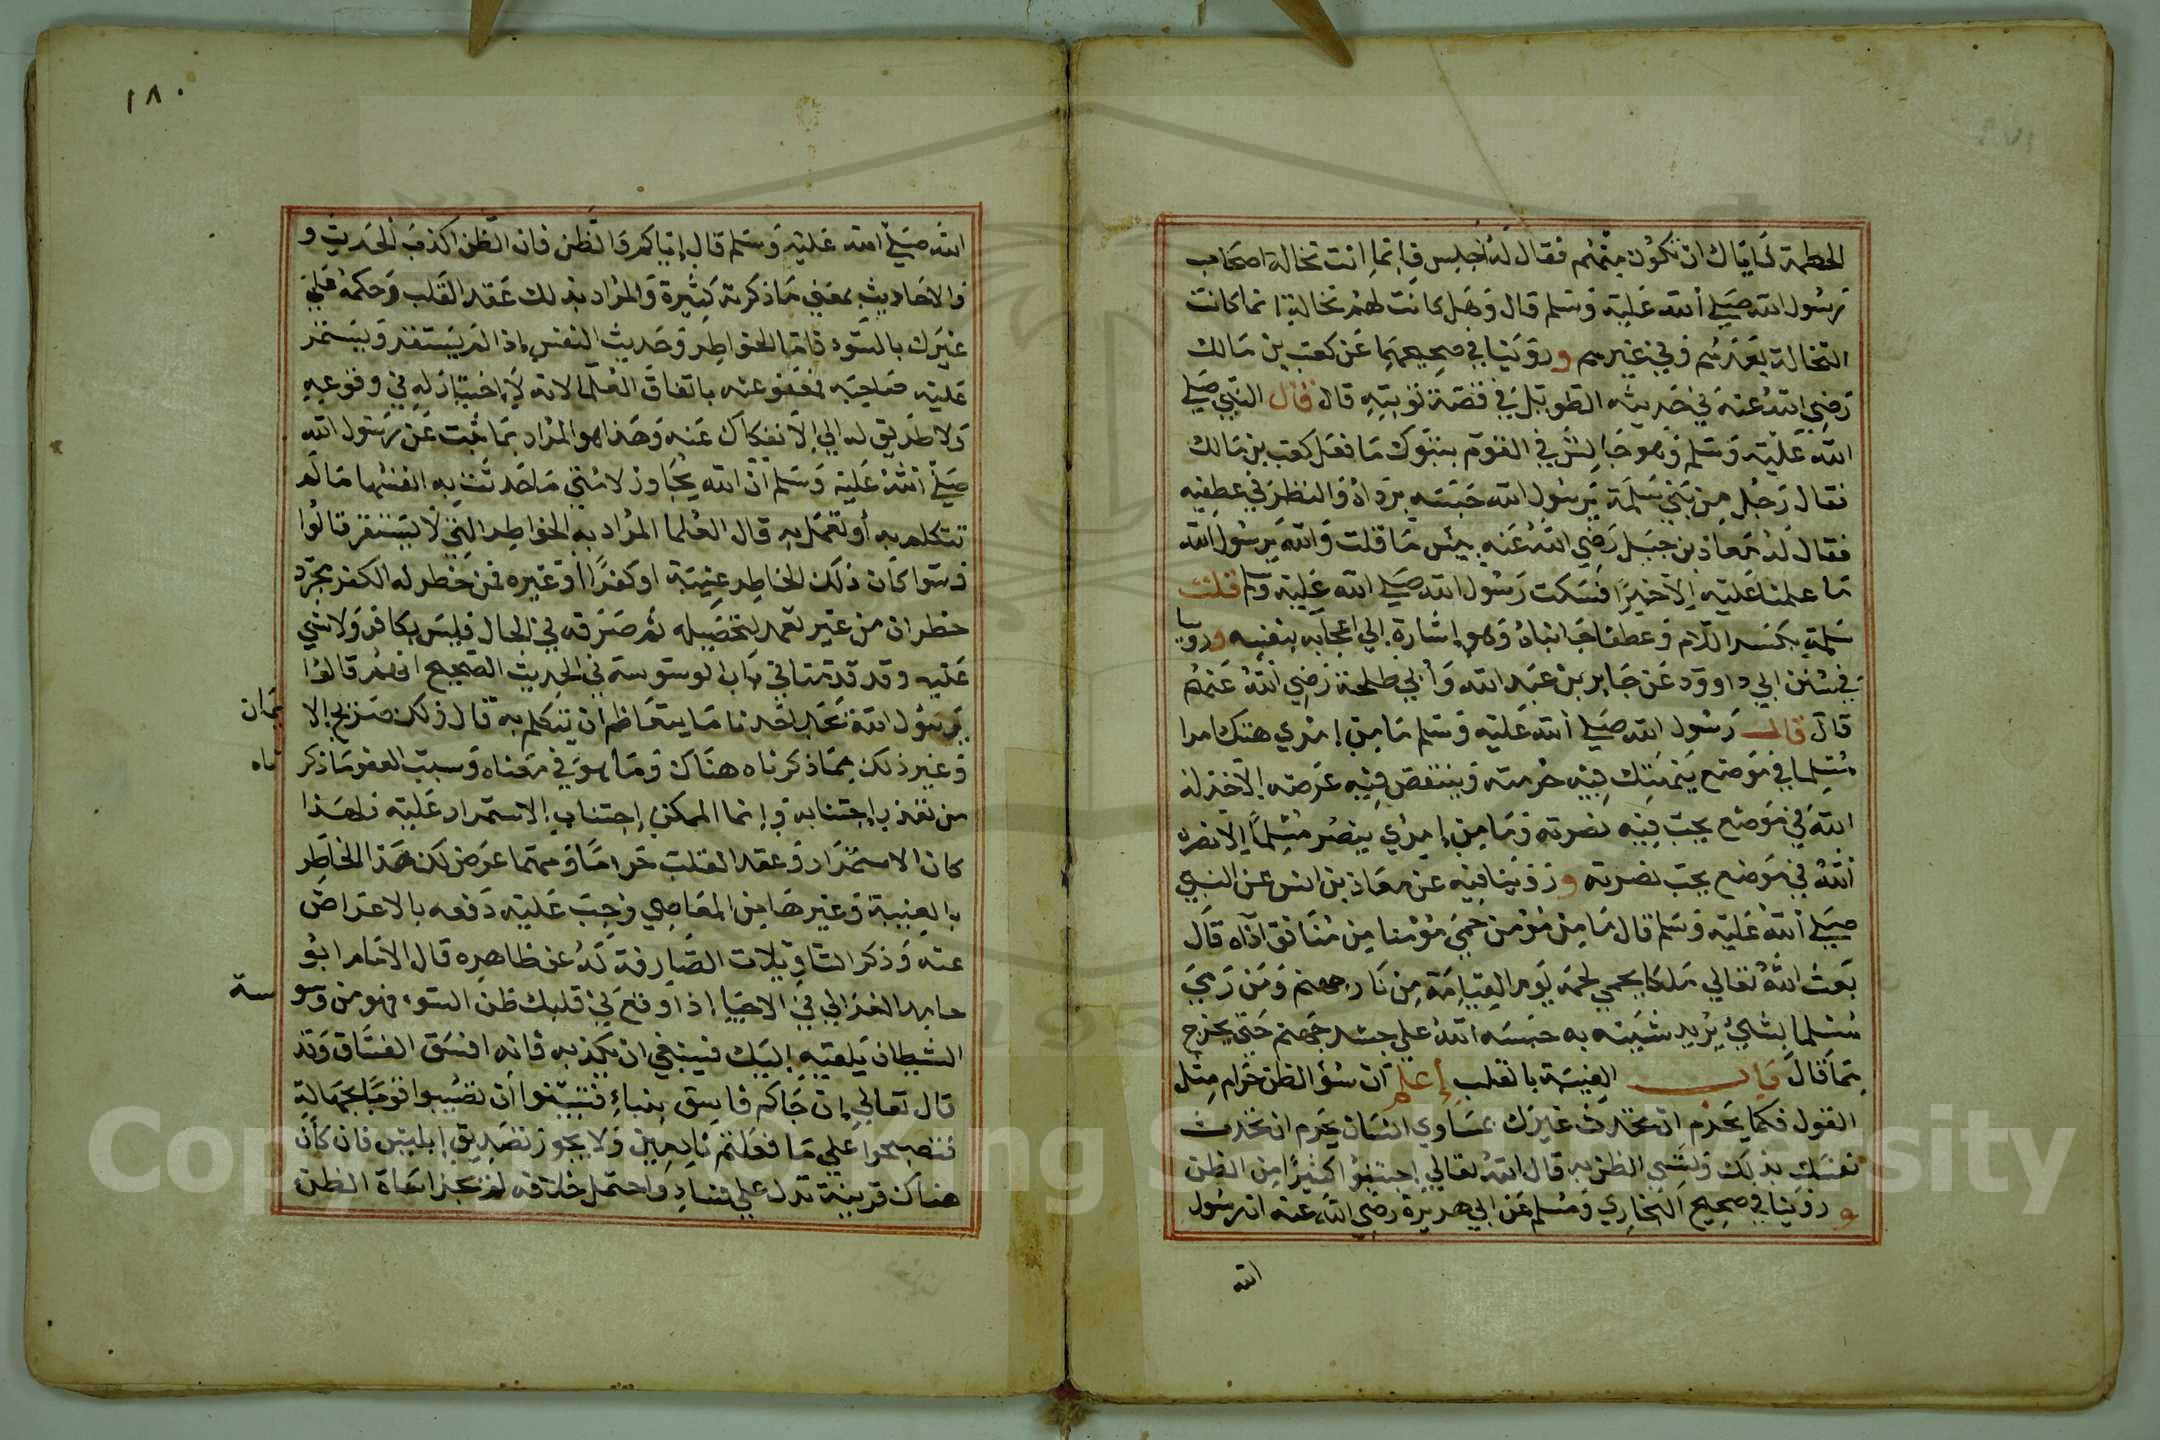 الحطمة فاياك ان تكون منهم فقال له اجلس فانما انت نخالة اصحاب
رسول الله صلى الله عليه وسلم قال وهل كانت لهم نخالة انما كانت
النخالة بعدهم وفي غيرهم وروينا في صحيحهما عن كعب بن مالك
رضي الله عنه في حديثه الطويل في قصة توبته قال قال النبي صلى
الله عليه وسلم وهو جالس في القوم بتبوك ما فعل كعب بن مالك
فقال رجل من بني سلمة يرسول الله حبسه برداه والنظر في عطفيه
فقال له معاذ بن جبل رضي الله عنه بيس ما قلت والله يرسول الله
ما علمنا عليه الا خيرا فسكت رسول الله صلى الله عليه وسلم قلت
سلمة بكسر اللام وعطفا جانباه وهو اشارة الي اعجابه بنفسه وروينا
في سنن ابي داوود عن جابر بن عبد الله وابي طلحة رضي الله عنهم
قال قال رسول الله صلى الله عليه وسلم ما من امري هتك امرا
مسلما في موضع ينهتك فيه حرمته وينتقص فيه عرضه الا خذله
الله في موضع يحب فيه نصرته وما من امري ينصر مسلما الا نصره
الله في موضع يحب نصرته وروينا فيه عن معاذ بن انس عن النبي
صلى الله عليه وسلم قال ما من مؤمن حمي مؤمنا من منافق اذاه قال
بعث الله تعالي ملكا يحمي لحمه يوم القيامة من نار جهنم ومن رمي
مسلما بشيء يريد شينه به حبسه الله علي جسر جهنم حتي يخرج
مما قال باب الغيبة بالقلب إعلم ان سؤ الظن حرام مثل
القول فكما يحرم ان تحدث غيرك بمساوي انسان يحرم ان تحدث
نفسك بذلك وتسي الظن به قال الله تعالي إجتنبوا كثيرا من الظن
و روينا في صحيح البخاري ومسلم عن ابي هريرة رضي الله عنه ان رسول
الله
١٨٠
الله صلى الله عليه وسلم قال إياكم والظن فان الظن اكذب الحديث و
والاحاديث بمعني ما ذكرته كثيرة والمراد بذلك عقد القلب وحكمه علي
غيرك بالسوء فاما الخواطر وحديث النفس إذا لم يستقر ويستمر
عليه صاحبه فمعفو عنه باتفاق العلما لانه لا إختيار له في وقوعه
ولا طريق له الي الانفكاك عنه وهذا هو المراد بما ثبت عن رسول الله
صلى الله عليه وسلم ان الله تجاوز لامتي ما حدثت به انفسها ما لم
تتكلم به أو تعمل به قال العلما المراد به الخواطر التي لا تستقر قالوا
وسوا كان ذلك الخاطر غيبة او كفرا أو غيره فمن خطر له الكفر مجرد
خطران من غير تعمد لتحصيله ثم صرفه في الحال فليس بكافر ولا شي
عليه وقد قدمنا في باب الوسوسة في الحديث الصحيح انهم قالوا
يرسول الله نجد احدنا ما يتعاظم أن يتكلم به قال ذلك صريح الا
يمان
وغير ذلك مما ذكرناه هناك وما هو في معناه وسبب العفو ما ذكر
ناه
من تعذر إجتنابه وإنما الممكن إجتناب الاستمرار عليه فلهذا
كان الاستمرار وعقد القلب حراما ومهما عرض لك هذا الخاطر
بالغيبة وغيرها من المعاصي وجب عليه دفعه بالاعتراض
عنه وذكر التاويلات الصارفة له عن ظاهره قال الامام ابو
حامد الغزالي في الاحيا إذا وقع في قلبك ظن السوء فهو من وسو
سة
الشيطان يلقيه اليك فينبغي ان يكذبه فانه افسق الفساق وقد
قال تعالي إن جاكم فاسق بنباء فتبينوا أن تصيبوا قوما بجهالة
فتصبحوا علي ما فعلتم نادمين ولا يجوز تصديق إبليس فان كان
هناك قرينة تدل علي فساد واحتمل خلافه لم يجز اساة الظن
Copyright © King Saud University